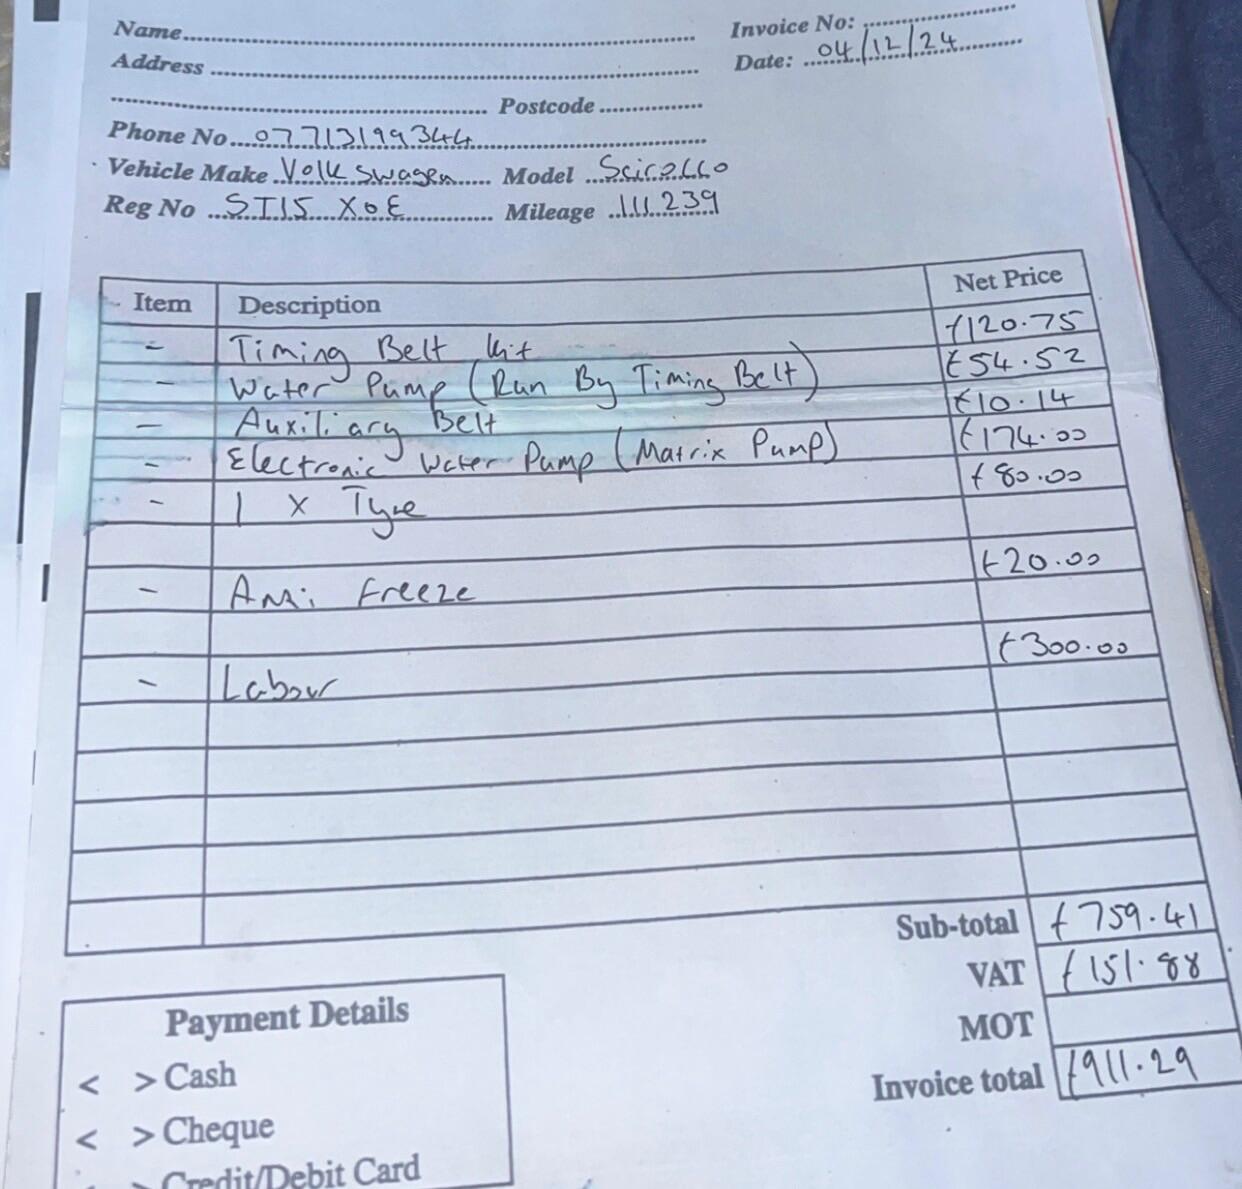 Name
Invoice No:
Address
Date: 04/12/24
Postcode
Phone No 07713199344
Vehicle Make Volkswagen Model Scirocco
Reg No ST15 XOE Mileage 111239
Item Description Net Price
- Timing Belt kit £120.75
- Water Pump (Run By Timing Belt) £54.52
- Auxiliary Belt £10.14
- Electronic Water Pump (Matrix Pump) £174.00
- 1 X Tyre £80.00
- Anti Freeze £20.00
- Labour £300.00
Sub-total £759.41
VAT £151.88
MOT
Invoice total £911.29
Payment Details
< > Cash
< > Cheque
< > Credit/Debit Card